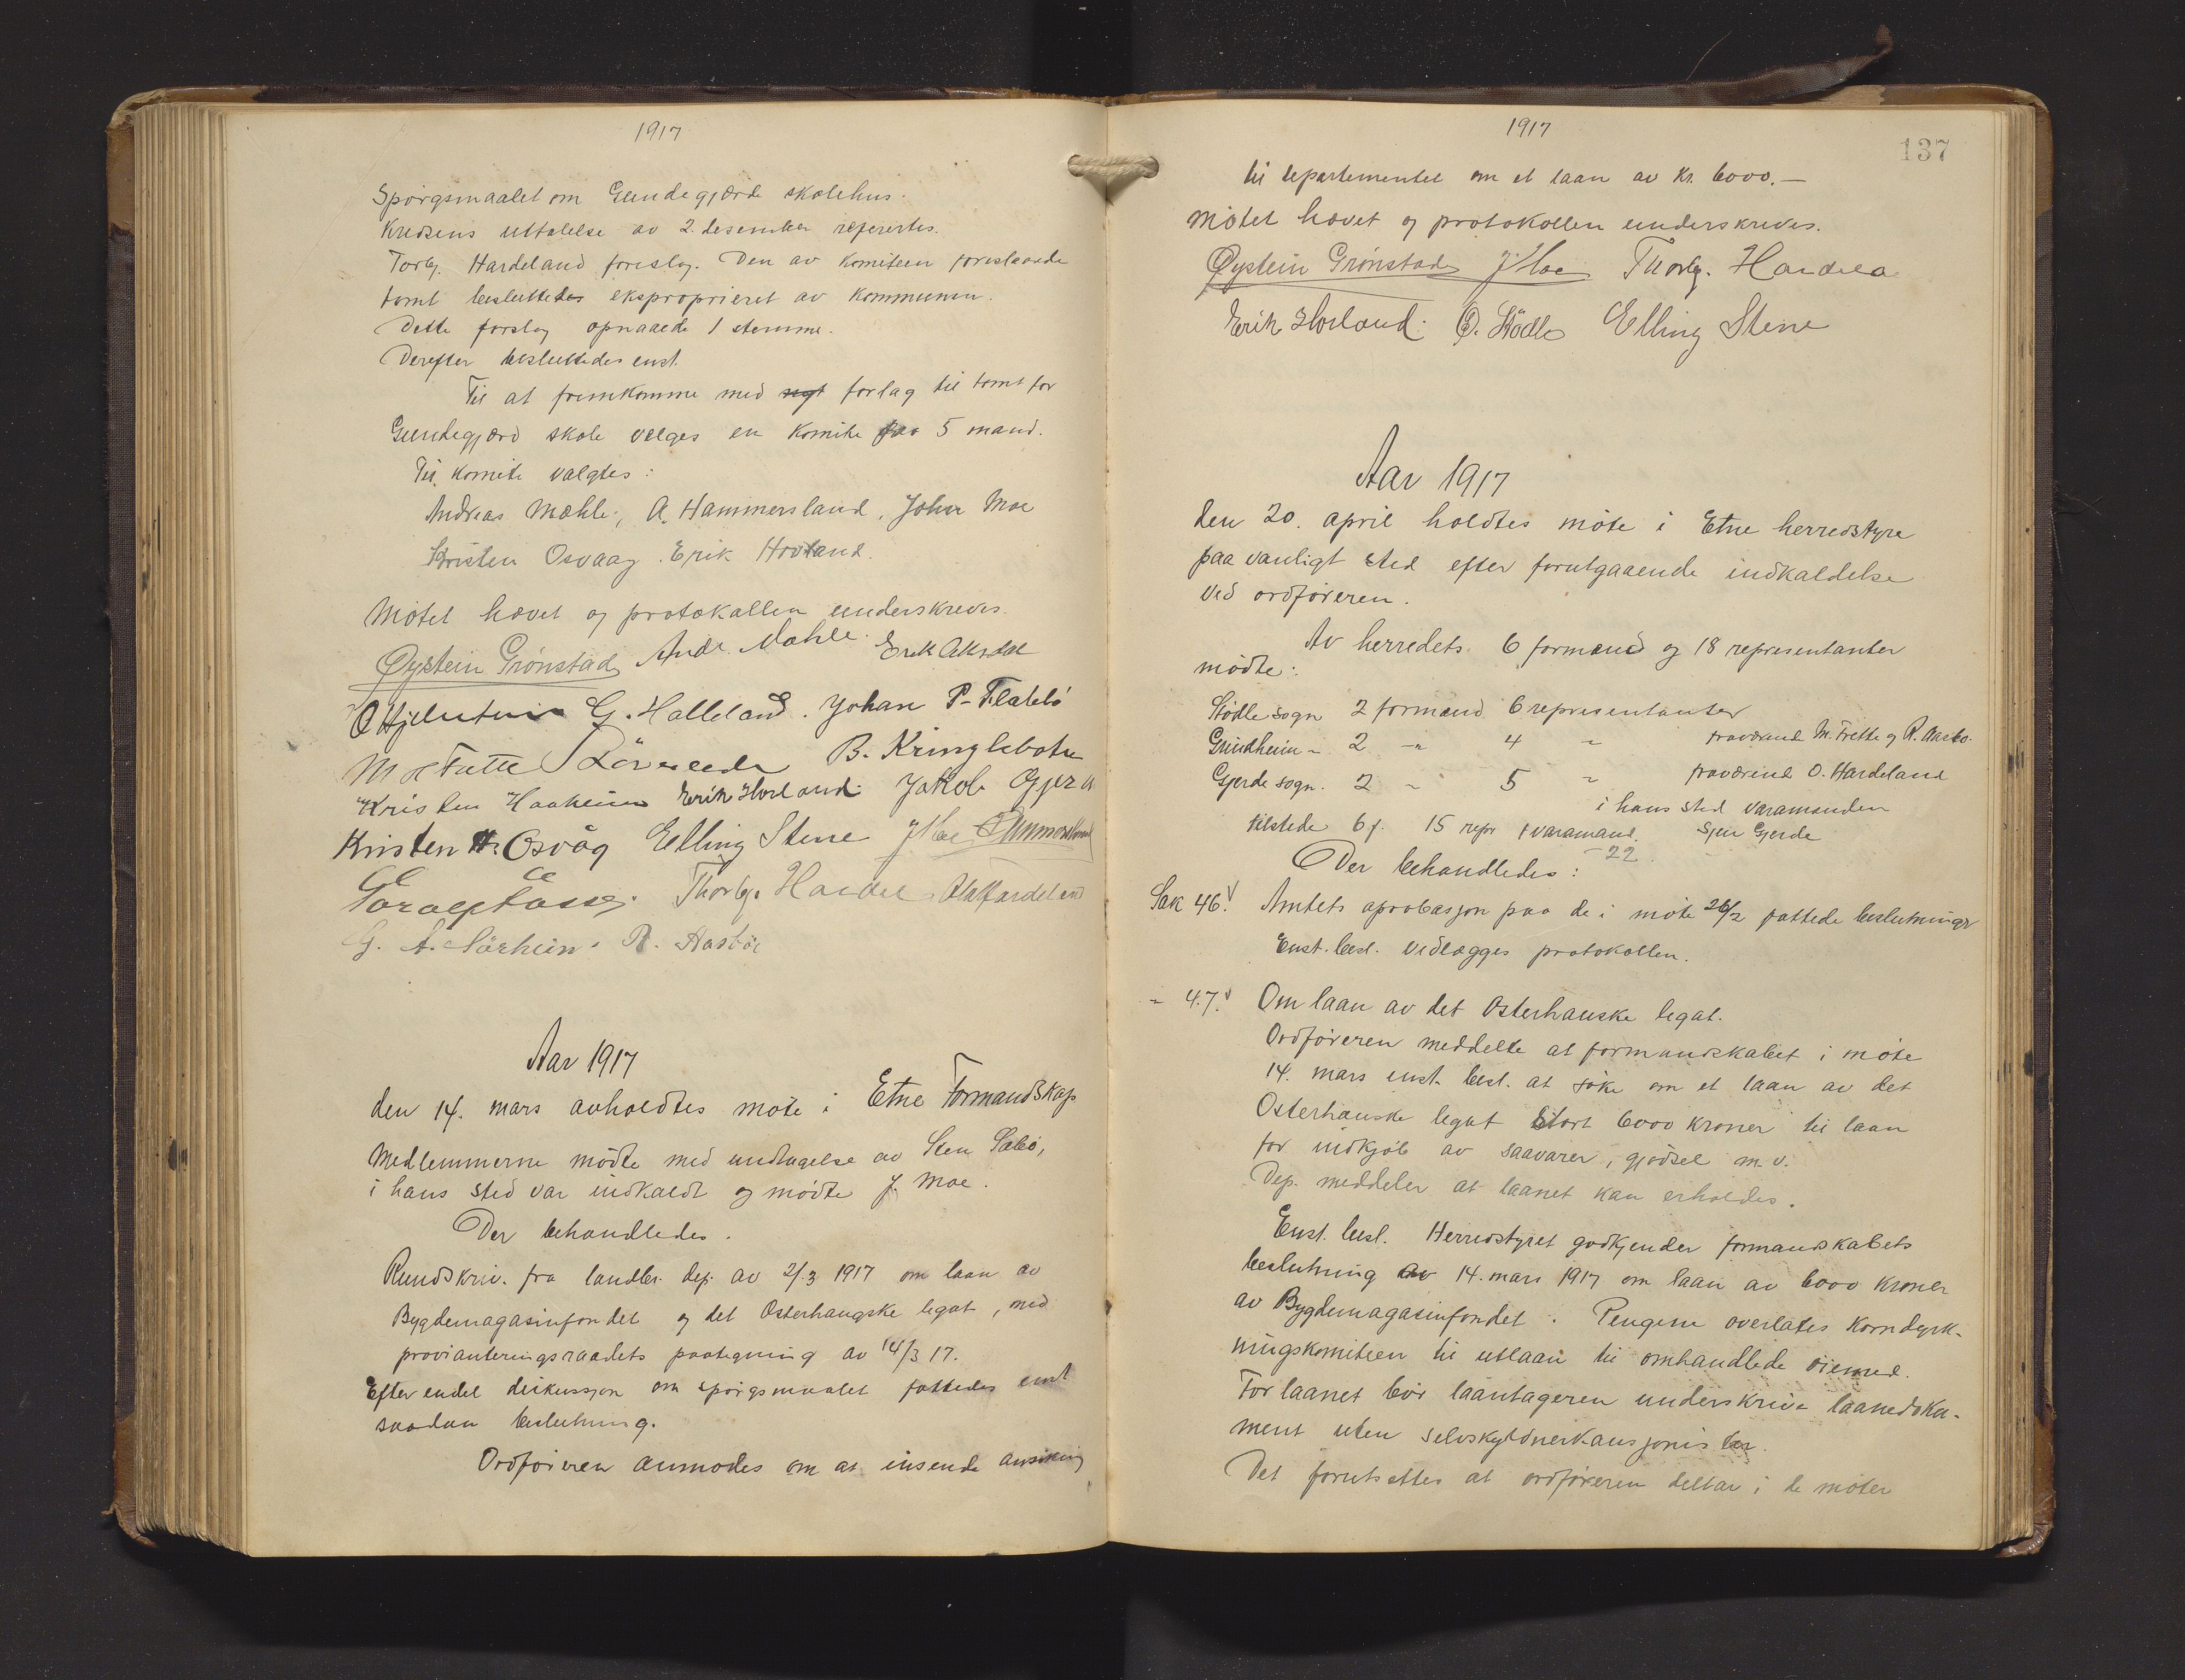 1917
Spörgsmaalet om Gundegjærde skolehus.
Kredsens uttalelse av 2. desember referertes.
Torbj. Hardeland foreslog. Den av komiteen foreslaaede
tomt besluttedes eksproprieret av kommunen.
Dette forslag opnaaede 1 stemme.
Derefter besluttedes enst.
Til at fremkomme med nyt forlag til tomt for
Gundegjærd skole vælges en komite paa 5 mand.
Til komite valgtes:
Andreas Mæhle, A. Hammersland, John Moe
Kristen Osvaag. Erik Hovland.
Mötet hævet og protokollen underskreves.
Øystein Grönstad Andr. Mæhle. Erik Aksdal
G. Halleland. Johan P. Flatebö
M Frette B. Kringlebotn
Kristen Haaheim Erik Hovland. Jakob Gjera
Kristen H. Osvåg Elling Stene J Moe
Thorbj. Hardel Hardeland
G. A. Sörheim. R. Aasbö
Aar 1917
den 14. mars avholdtes möte i Etne Formandskap
Medlemmerne mödte med undtagelse av Sten Sæbö,
i hans sted var indkaldt og mödte J. Moe.
Der behandledes.
Rundskriv. fra landbr. dep. av 2/3 1917 om laan av
Bygdemagasinfondet og det Osterhaugske legat, med
provianteringsraadets paategning av 14/3 17.
Efter endel diskussjon om spörgsmaalet fattedes enst
saadan beslutning.
Ordföreren anmodes om at insende ansökning
1917
137
til departementet om et laan av Kr. 6000.—
Mötet hævet og protokollen underskreves.
Øystein Grönstad J Moe Thorbj. Hardela
Erik Hovland. O. Stödle Elling Stene
Aar 1917
den 20. april holdtes möte i Etne herredstyre
paa vanligt sted efter forutgaaende indkaldelse
ved ordföreren.
Av herredets 6 formænd og 18 representanter
mödte:
Stödle sogn 2 formænd 6 representanter
Grindheim - 2 -"- 4 - fraværend M. Frette og R. Aasbö.
Gjerde sogn. 2 - 5 - fraværend O. Hardeland
i hans sted varamanden
tilstede 6 f. 15 repr 1 varamand Sjur Gjerde
-22
Der behandledes:
Sak 46. Amtets aprobasjon paa de i möte 26/2 fattede beslutninger
Enst. besl. Vedlægges protokollen.
- 47. Om laan av det Osterhauske legat.
Ordföreren meddelte at formandskabet i möte
14. mars enst. besl. at söke om et laan av det
Osterhauske legat stort 6000 kroner til laan
for indkjöb av saavarer, gjödsel m. v.
Dep. meddeler at laanet kan erholdes.
Enst. besl. Herredstyret godkjender formandskabets
beslutning av 14. mars 1917 om laan av 6000 kroner
av Bygdemagasinfondet. Pengene overlates korndyrk-
ningskomiteen til utlaan til omhandlede öiemed.
For laanet bör laantageren underskrive laanedoku-
ment uten selvskyldnerkausjonister.
Det forutsettes at ordföreren deltar i de möter